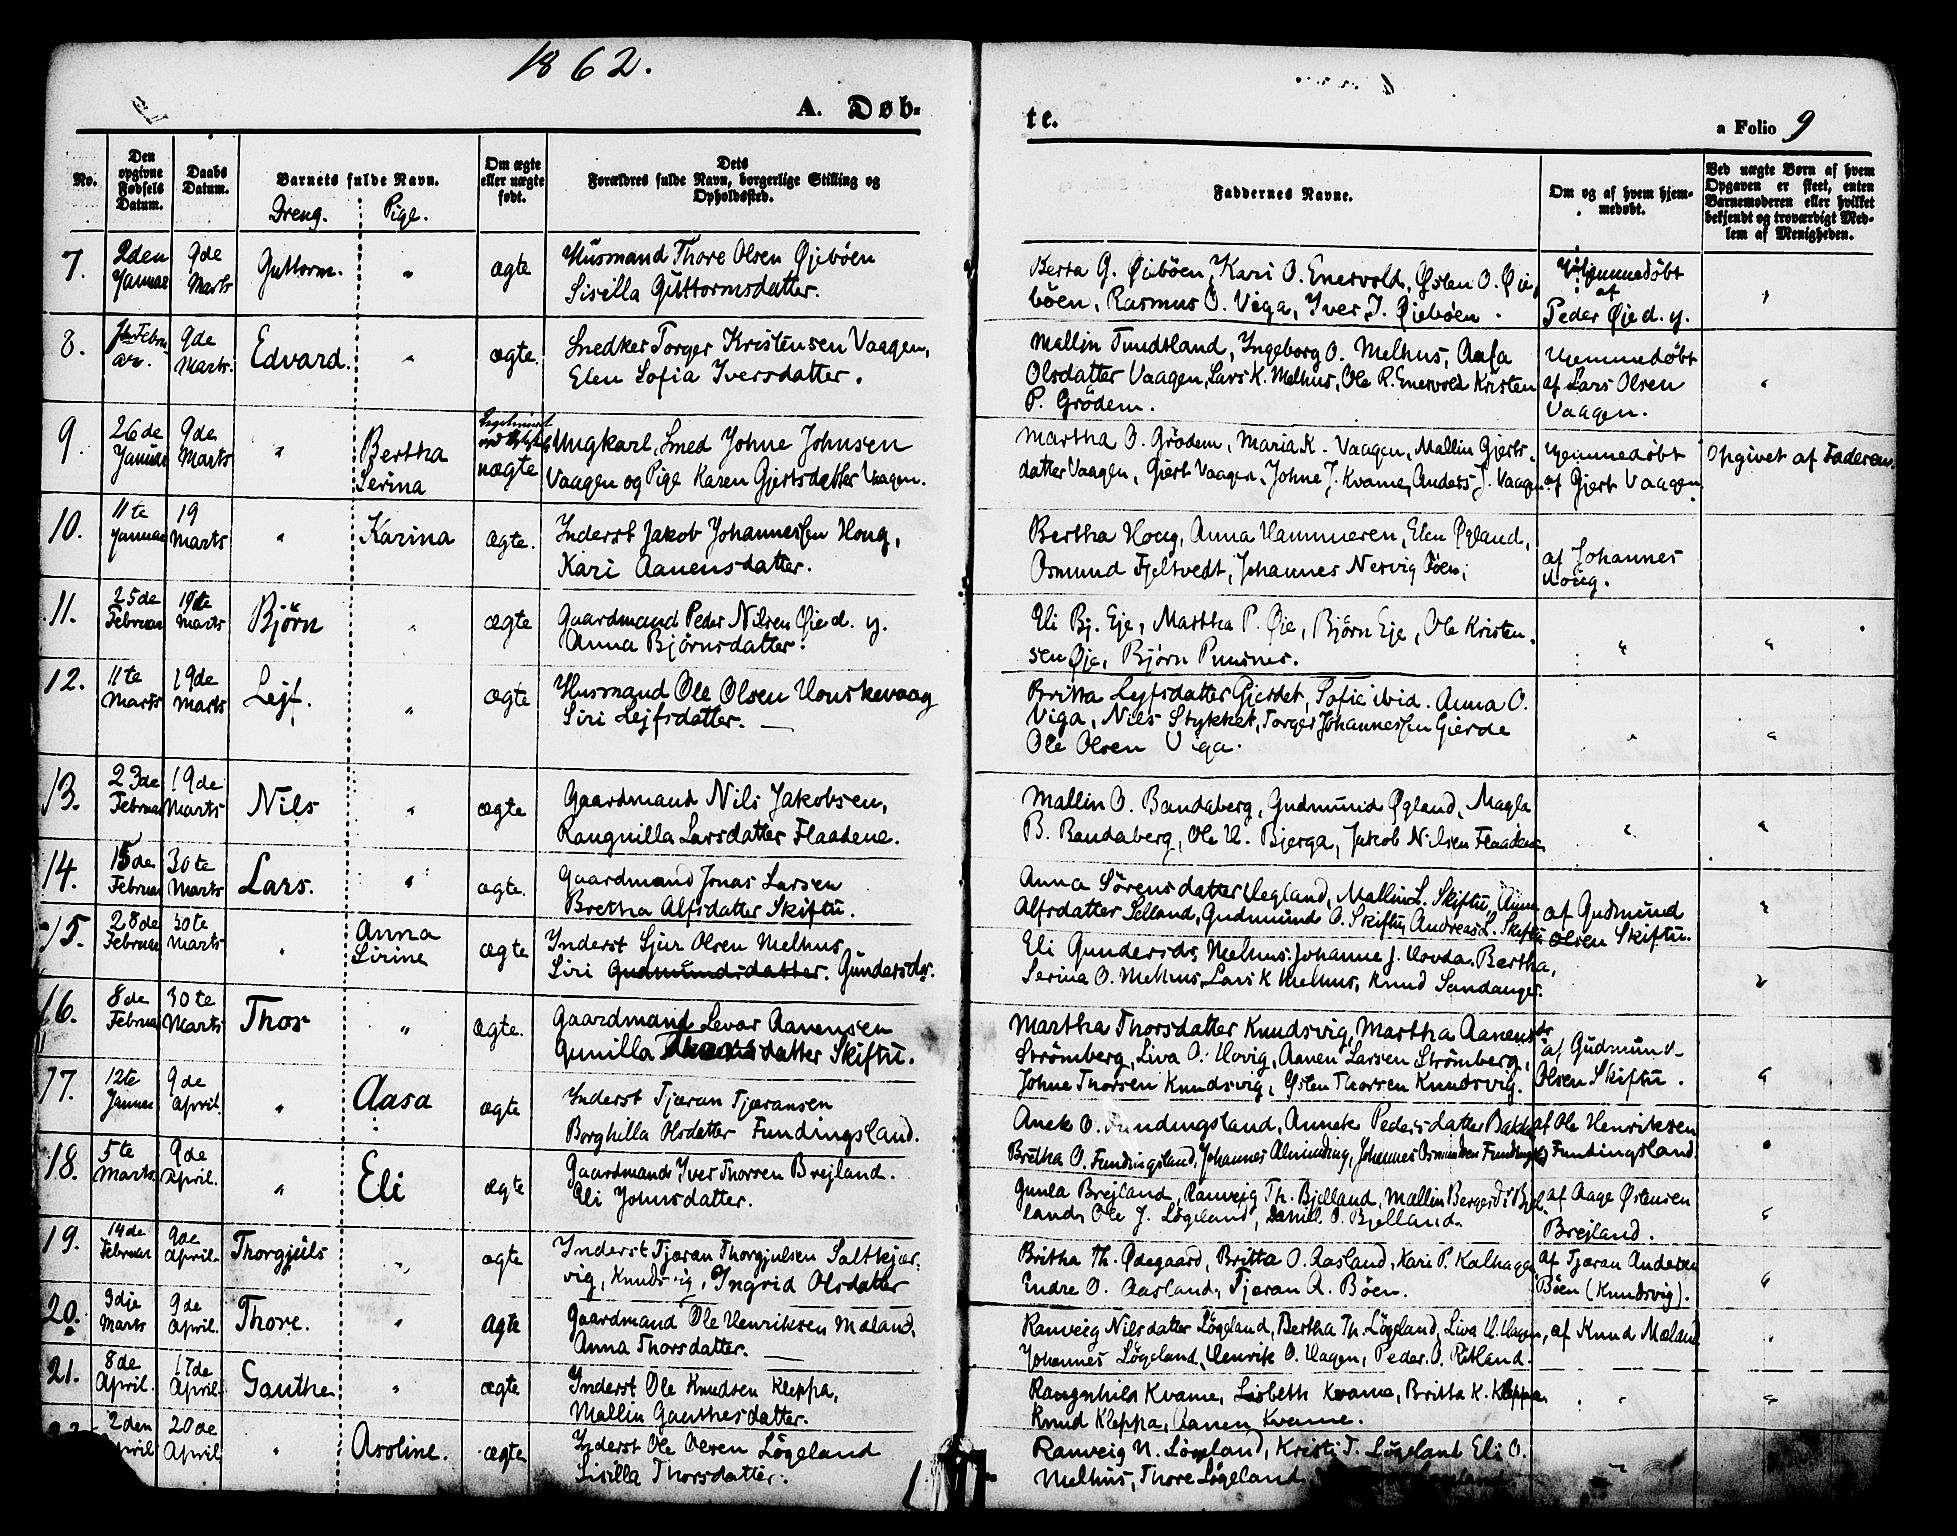 1862.
A. Døb-
te.
a Folio 9
No.
Den opgivne Fødsels Datum.
Daabs Datum.
Barnets fulde Navn.
Dreng. Pige.
Om ægte eller uægte født.
Dets
Forældres fulde Navn, borgerlige Stilling og
Opholdssted.
Faddernes Navne.
Om og af hvem hjem-
medøbt.
Ved uægte Børn af hvem
Opgaven er skeet, enten
Barnemoderen eller hvilket
bekjendt og troværdigt Med-
lem af Menigheden.
7. 2den Januar 9de Marts Guttorm. " ægte Husmand Thore Olsen Øjebøen
Sisilla Guttormsdatter.
Berta G. Øiebøen, Kari O. Enersvold, Østen O. Øie,
bøen, Rasmus O. Viga, Iver J. Øiebøen.
Hjemmedøbt
af
Peder Øie d. y.
8. Febru-ar. 9de Marts. Edvard. " ægte. Snedker Torger Kristensen Vaagen,
Elen Sofia Iversdatter.
Mallin Tundtland, Ingeborg O. Melhus, Aasa
Olsdatter Vaagen, Lars K. Melhus, Ole R. Enersvold Kristen
P. Grödem.
Hjemmedøbt
af Lars Olsen
Vaagen.
9. 26de Januar 9de Marts " Bertha Serina uægte Ungkarl, Smed Johne Johnsen
Vaagen og Pige Karen Gjertsdatter Vaagen.
Martha O. Grødem, Maria K. Vaagen, Mallin Gjerts-
datter Vaagen, Gjert Vaagen, Johne J. Kvame, Anders J. Vaagen
Hjemmedøbt
af Gjert Vaagen.
Opgivet af Faderen.
10. 11te Januar 19 Marts " Karina ægte. Inderst Jakob Johannessen Houg,
Kari Aanensdatter.
Bertha Houg, Anna Hammeren, Elen Øgland,
Osmund Fjeltvedt, Johannes Nesvig Bøen;
af Johannes
Houg.
11. 25de Februar 19de Marts Bjørn " ægte Gaardmand Peder Nilsen Øie d. y.
Anna Bjørnsdatter.
Eli Bj. Eje, Martha P. Øie, Bjørn Eje, Ole Kristen-
sen Øje, Bjørn Puntsnes.
12. 11te Marts 19de Marts Lejf. " ægte Husmand Ole Olsen Honskevaag
Siri Lejfsdatter.
Britta Lejfsdatter Gjerdet, Sofie ibid. Anna O.
Viga, Nils Stykket, Torger Johannessen Gjerde
Ole Olsen Viga.
13. 23de Februar 19de Marts Nils " ægte Gaardmand Nils Jakobsen,
Rangnilla Larsdatter Flaadene.
Mallin O. Bandaberg, Gudmund Øgland, Magla
B. Bandaberg, Ole H. Bjerga, Jakob Nilsen Flaadene
14. 15de Februar 30te Marts Lars. " ægte. Gaardmand Jonas Larsen
Bretha Alfsdatter Skiftu.
Anna Sörensdatter Hegland, Mallin L. Skiftu, Anna
Alfsdatter Selland, Gudmund O. Skiftu, Andreas L. Skiftu
af Gudmund
Olsen Skiftu.
15. 28de Februar 30te Marts " Anna Sirine ægte Inderst Sjur Olsen Melhus,
Siri Gudmundsdatter. Gundersdtr.
Eli Gundersds. Melhus. Johanne J. Hovda. Bertha,
Serina O. Melhus, Lars K Melhus, Knud Sandanger.
16. 8de Februar 30te Marts Thor " ægte. Gaardmand Levar Aanensen
Gunilla Thorsdatter Skiftu.
Martha Thorsdatter Knudsvig, Martha Aanensdr
Strømberg, Liva O. Hovig, Aanen Larsen Strömberg,
Johne Thorsen Knudsvig, Østen Thorsen Knudsvig.
af Gudmund
Olsen Skiftu.
17. 12te Januar 9de April. " Aasa ægte Inderst Tjæran Tjæransen
Borghilla Olsdatter Fundingsland.
Anek O. Fundingsland, Anneke Pedersdatter Bakka
Bretha O. Fundingsland, Johannes Alminding, Johannes Osmundsen Funding
af Ole Henriksen
Fundingsland.
18. 5te Marts. 9de April. " Eli ægte Gaardmand Iver Thorsen Brejland.
Eli Johnsdatter.
Gunla Brejland, Ranveig Th. Bjelland, Mallin Bergersd. Bjel-
land, Ole J. Løgeland, Daniel O. Bjelland.
af Aage Østensen
Brejland.
19. 14de Februar 9de April. Thorgjuls " ægte Inderst Tjæran Thorgjulsen Saltkjær-
vig, Knudsvig, Ingrid Olsdatter
Britha Th. Ødegaard, Britta O. Aasland, Kari P. Kalhagen
Endre O. Aasland, Tjæran A. Bøen.
af Tjæran Andersen
Bøen (Knudsvig).
20. 3dje Marts 9de April. Thore. " ægte Gaardmand Ole Henriksen Mæland.
Anna Thorsdatter.
Ranveig Nilsdatter Løgeland, Bertha Th. Løgeland, Liva H. Hagen,
Johannes Løgeland, Henrik O. Hagen, Peder O. Ritland.
af Knud Mæland
21. 8de April. 17de April. Gauthe " ægte Inderst Ole Knudsen Kleppa,
Mallin Gauthesdatter.
Rangnhild Kvame, Lisbeth Kvame, Britta K. Kleppa
Knud Kleppa, Aanen Kvame.
2den April 20de April " Asoline. ægte Inderst Ole Olsen Løgeland
Sisilla Thorsdatter.
Ranveig N. Løgeland, Kristi T. Løgeland Eli O.
Melhus, Thore Løgeland